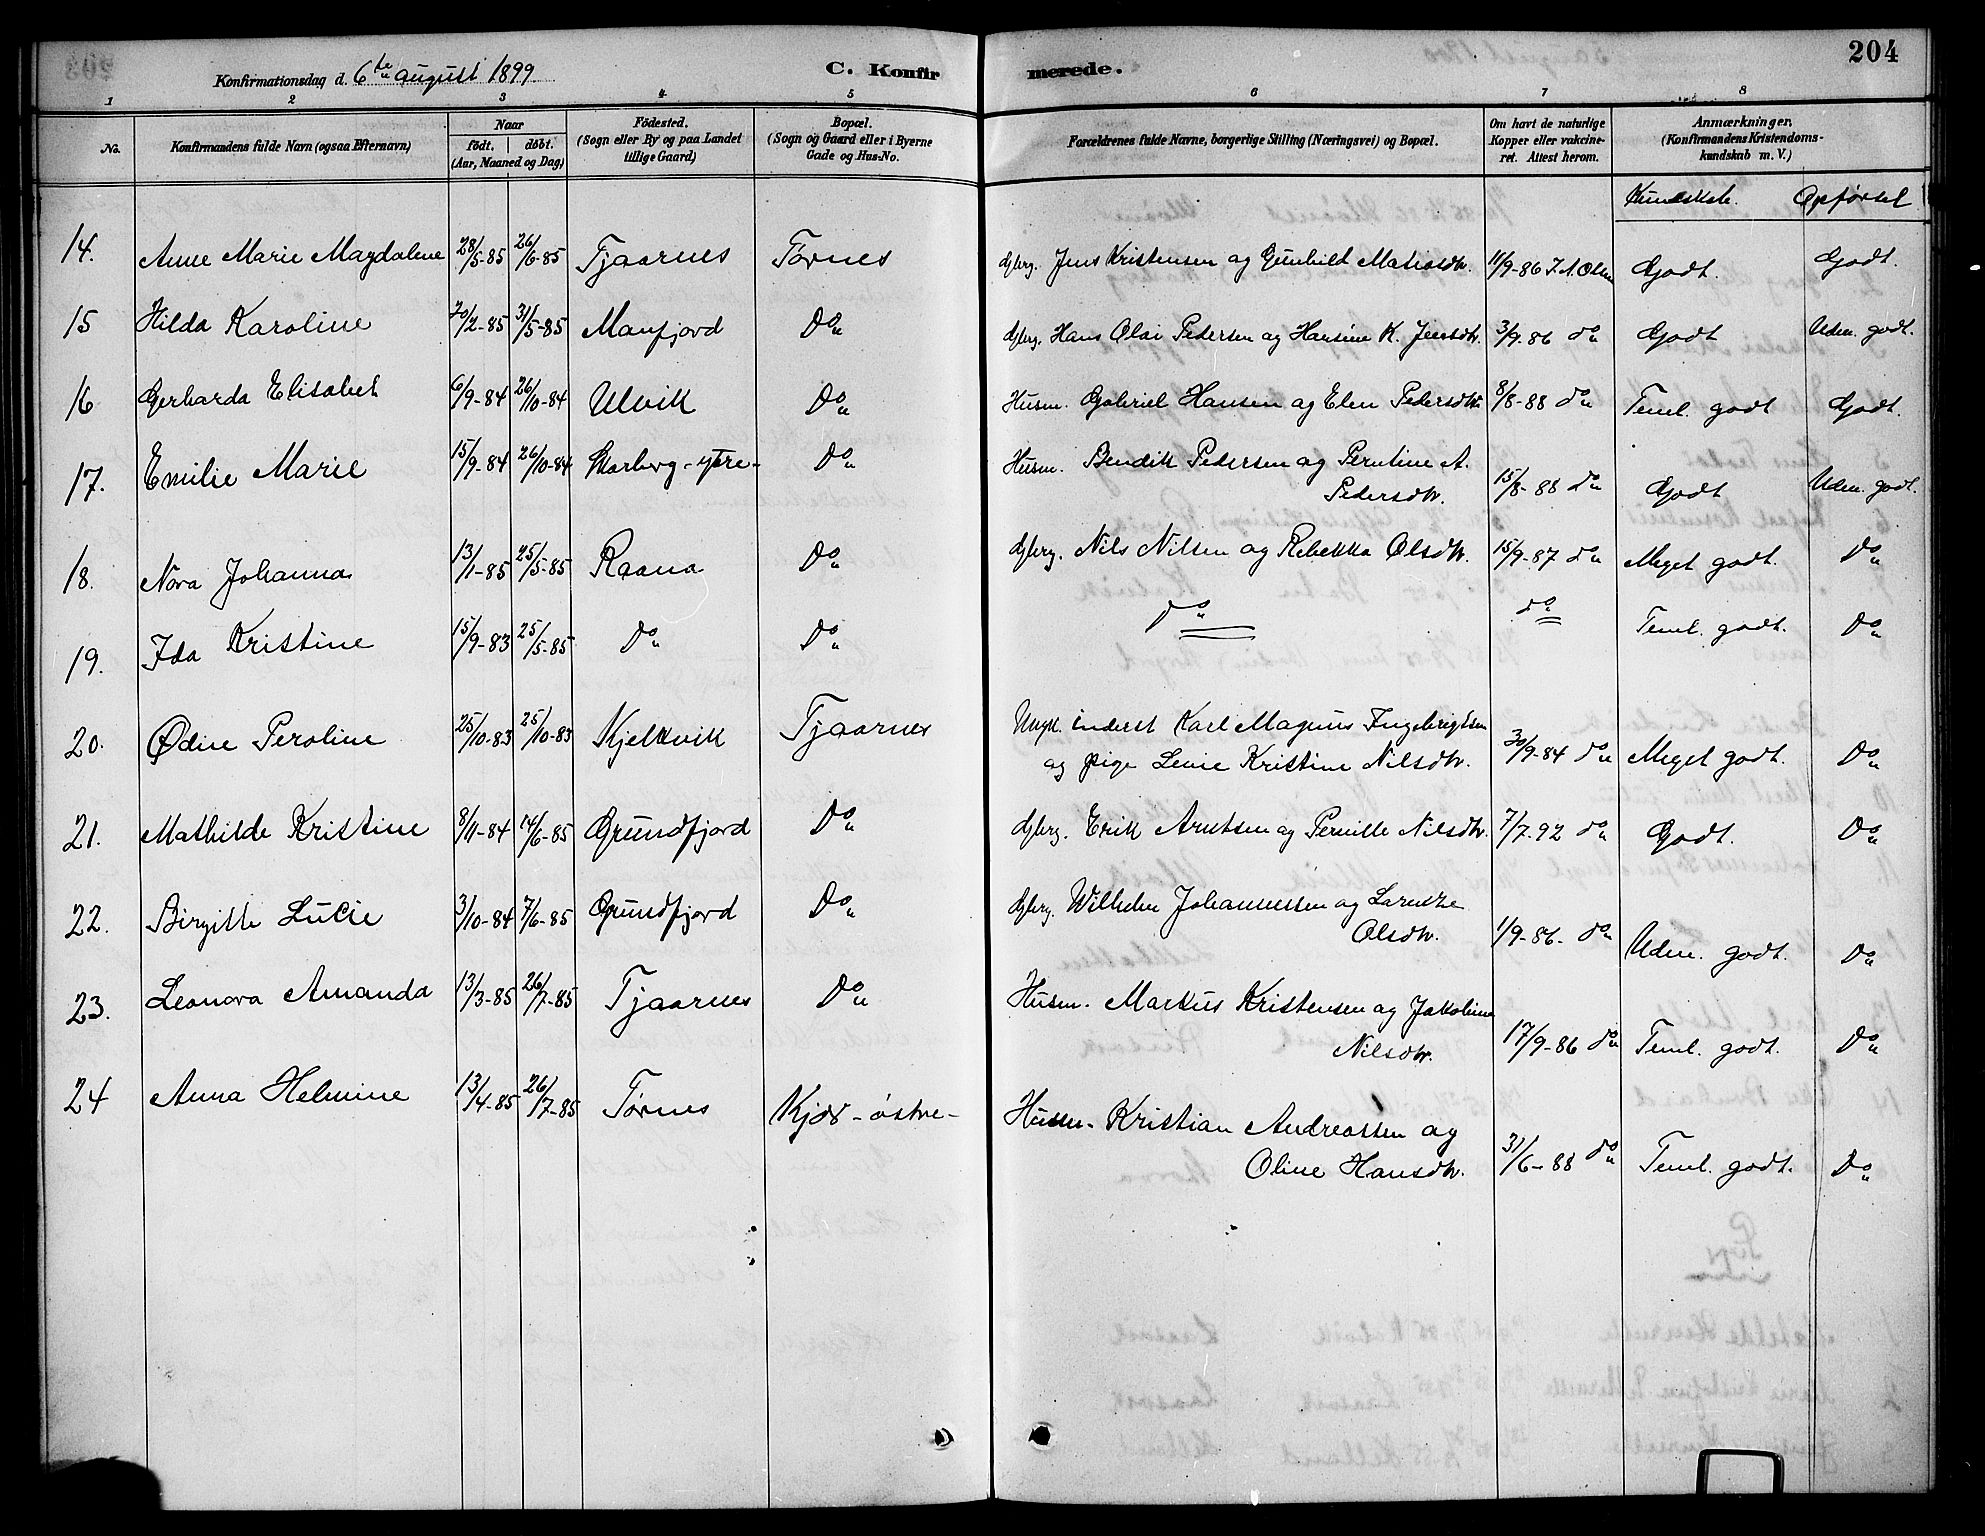 204
Konfirmationsdag d. 6te august 1899.
C. Konfirmerede.
1 2 3 4 5 6 7 8
No.
Konfirmandens fulde Navn (ogsaa Efternavn)
Naar
födt. döbt.
(Aar, Maaned og Dag)
Födested.
(Sogn eller By og paa Landet
tillige Gaard)
Bopæl.
(Sogn og Gaard eller i Byerne
Gade og Hus-No.
Forældrenes fulde Navne, borgerlige Stilling (Næringsvei) og Bopæl.
Om havt de naturlige
Kopper eller vakcine-
ret. Attest herom.
Anmærkninger.
(Konfirmandens Kristendoms-
kundskab m. V.)
Kundskab. Opførsel
14. Anne Marie Magdalene 28/5-85 26/6-85 Tjaarnes Tørnes Gbrg. Jens Kristensen og Gunhild Matiasdtr. 11/9-86 J. A. Olsen Godt. Godt.
15 Hilda Karoline 20/2-85 31/5-85 Manfjord Do Gbrg. Hans Olai Pedersen og Hansine K. Jensdtr. 3/9-86 do Godt Uden. godt.
16 Gerharda Elisabet 6/9-84 26/10-84 Ulvik Do Husm. Gabriel Hansen og Elen Pedersdtr. 8/8-88 do Teml. godt Godt.
17. Emilie Marie 15/9-84 26/10-84 Skarberg-ytre- Do Husm. Bendik Pedersen og Perntine A.
Pedersdtr. 15/8-88 do Godt Uden. godt.
18. Nora Johanna 13/1-85 25/5-85 Raana Do Gbrg. Nils Nilsen og Rebekka Olsdtr. 15/9-87 do Meget godt. Do
19. Ida Kristine 15/9-83 25/5-85 Do Do do do Teml. godt. Do
20. Ødine Peroline 25/10-83 25/10-83 Kjelkvik Tjaarnes Ungk. inderst Karl Magnus Ingebrigtsen
og pige Lenie Kristine Nilsdtr. 30/9-84 do Meget godt. Do
21. Mathilde Kristine 8/11-84 14/6-85 Grundfjord Do Gbrg. Erik Arntsen og Pernille Nilsdtr. 7/7-92 do Godt. Do
22. Birgitte Lucie 3/10-84 7/6-85 Grundfjord Do Gbrg. Wilhelm Johannessen og Larentze
Olsdtr. 1/9-86- do Uden. godt. Do
23. Leonora Amanda 13/3-85 26/7-85 Tjaarnes Do Husm. Markus Kristensen og Jakobine
Nilsdtr. 17/9-86 do Teml. godt. Do
24 Anna Helmine 13/4-85 26/7-85 Tørnes Kjær-østre- Husm. Kristian Andreassen og
Oline Hansdtr. 31/6-88 do Teml. godt. Do